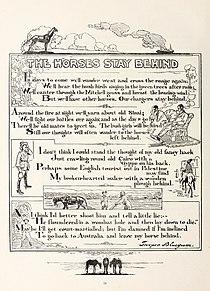 THE HORSES STAY BEHIND
In days to come we'll wander west and cross the range again;
We'll hear the bush birds singing in the green trees after rain;
We'll canter through the Mitchell grass and breast the bracing wind:
But we'll have other horses. Our chargers stay behind.
Around the fire at night we'll yarn about old Sinai;
We'll fight our battles o'er again; and as the days go by
There'll be old mates to greet us. The bush girls will be kind.
Still our thoughts will often wander to the horses
left behind.
I don't think I could stand the thought of my old fancy hack
Just crawling round old Cairo with a
'Gyppo on his back.
Perhaps some English tourist out in Palestine
may find
My broken-hearted waler with a wooden
plough behind.
No: I think I'd better shoot him and tell a little lie:—
"He floundered in a wombat hole and then lay down to die."
May be I'll get court-martialled; but I'm damned if I'm inclined
To go back to Australia and leave my horse behind.